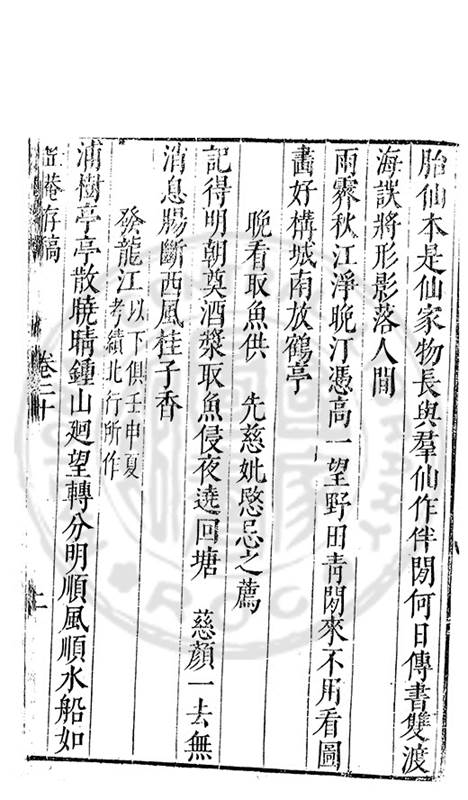 胎仙本是仙家物長與羣仙作伴閒何日傳書雙渡
海誤將形影落人間
雨霽秋江淨晚汀憑高一望野田青閒來不用看圖
畵好構城南放鶴亭
晚看取魚供　先慈妣愍忌之薦
記得明朝奠酒漿取魚侵夜遶回塘　慈顏一去無
消息腸斷西風桂子香
發龍江以下俱壬申夏考績北行所作
浦樹亭亭散曉晴鍾山廻望轉分明順風順水船如
菴存稿　卷二十　二